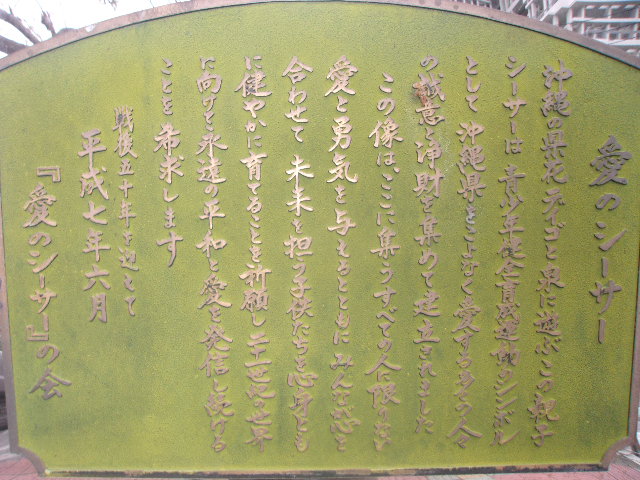 愛のシーサー
沖縄の県花デイゴと界に遊ぶこの親子
シーサーは、青少年健全育成運動のシンボル
として沖縄県をこよなく愛する多くの人
の誠意と浄財を集めて建立されました
この像は、ここに集うすべての人に限りない
愛と勇気を与えるとともにみんな心を
合わせて未来を担う子供たちを心身とも
に健やかに育てることを祈願し二十一世紀の世界
に向けて永遠の平和と愛を発信し続ける
ことを希求します
戦後五十年を迎えて
平成七年六月
『愛のシーサー』の会